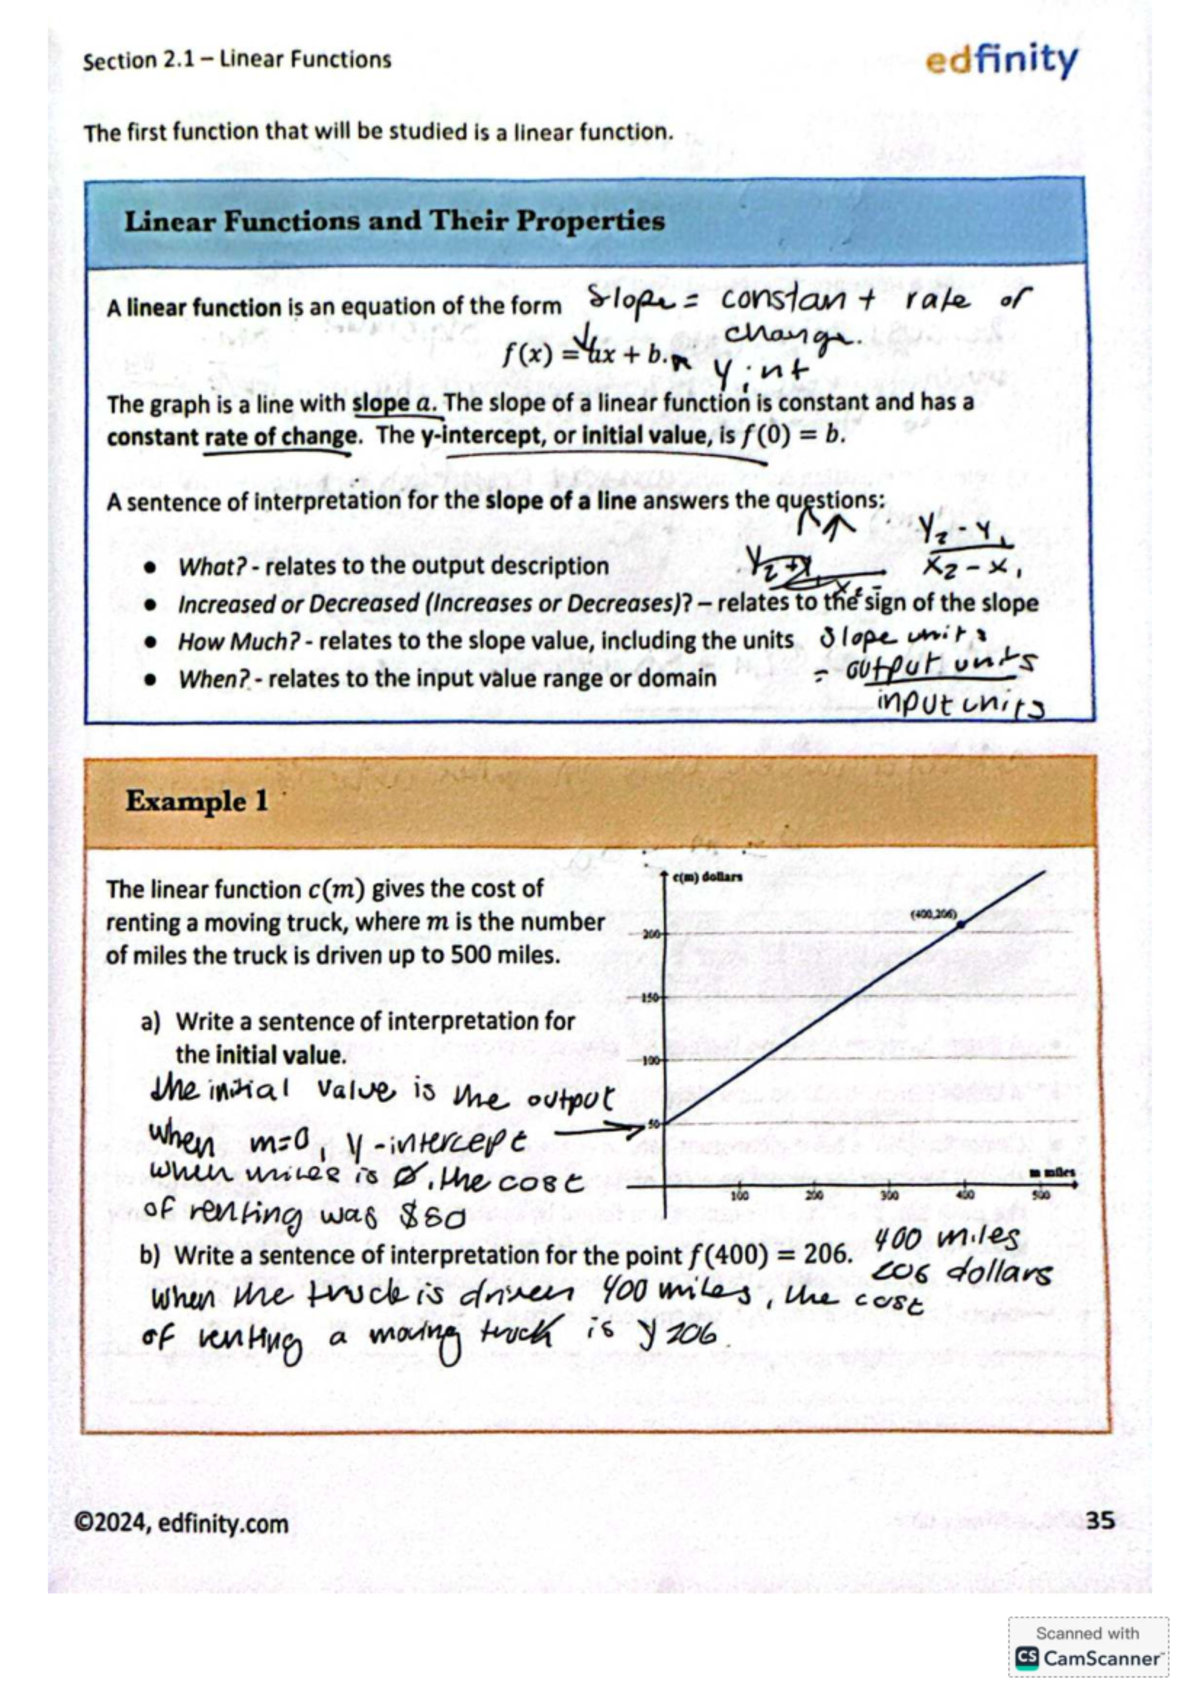 Section 2.1 – Linear Functions
edfinity
The first function that will be studied is a linear function.
Linear Functions and Their Properties
A linear function is an equation of the form Slope = constant rate of
change.
f(x) = ax + b.
y int
The graph is a line with slope a. The slope of a linear function is constant and has a
constant rate of change. The y-intercept, or initial value, is f(0) = b.
A sentence of interpretation for the slope of a line answers the questions:
y2 - y1
x2 - x1
• What? - relates to the output description
• Increased or Decreased (Increases or Decreases)? – relates to the sign of the slope
• How Much? - relates to the slope value, including the units Slope units
= output units
• When? - relates to the input value range or domain
input units
Example 1
The linear function c(m) gives the cost of
renting a moving truck, where m is the number
of miles the truck is driven up to 500 miles.
c(m) dollars
(400,206)
200
150
100
50
m miles
100 200 300 400 500
a) Write a sentence of interpretation for
the initial value.
the initial value is the output
when m=0, y-intercept
when miles is 0, the cost
of renting was $50
b) Write a sentence of interpretation for the point f(400) = 206. 400 miles
206 dollars
when the truck is driven 400 miles, the cost
of renting a moving truck is 206.
©2024, edfinity.com
35
Scanned with
CS CamScanner